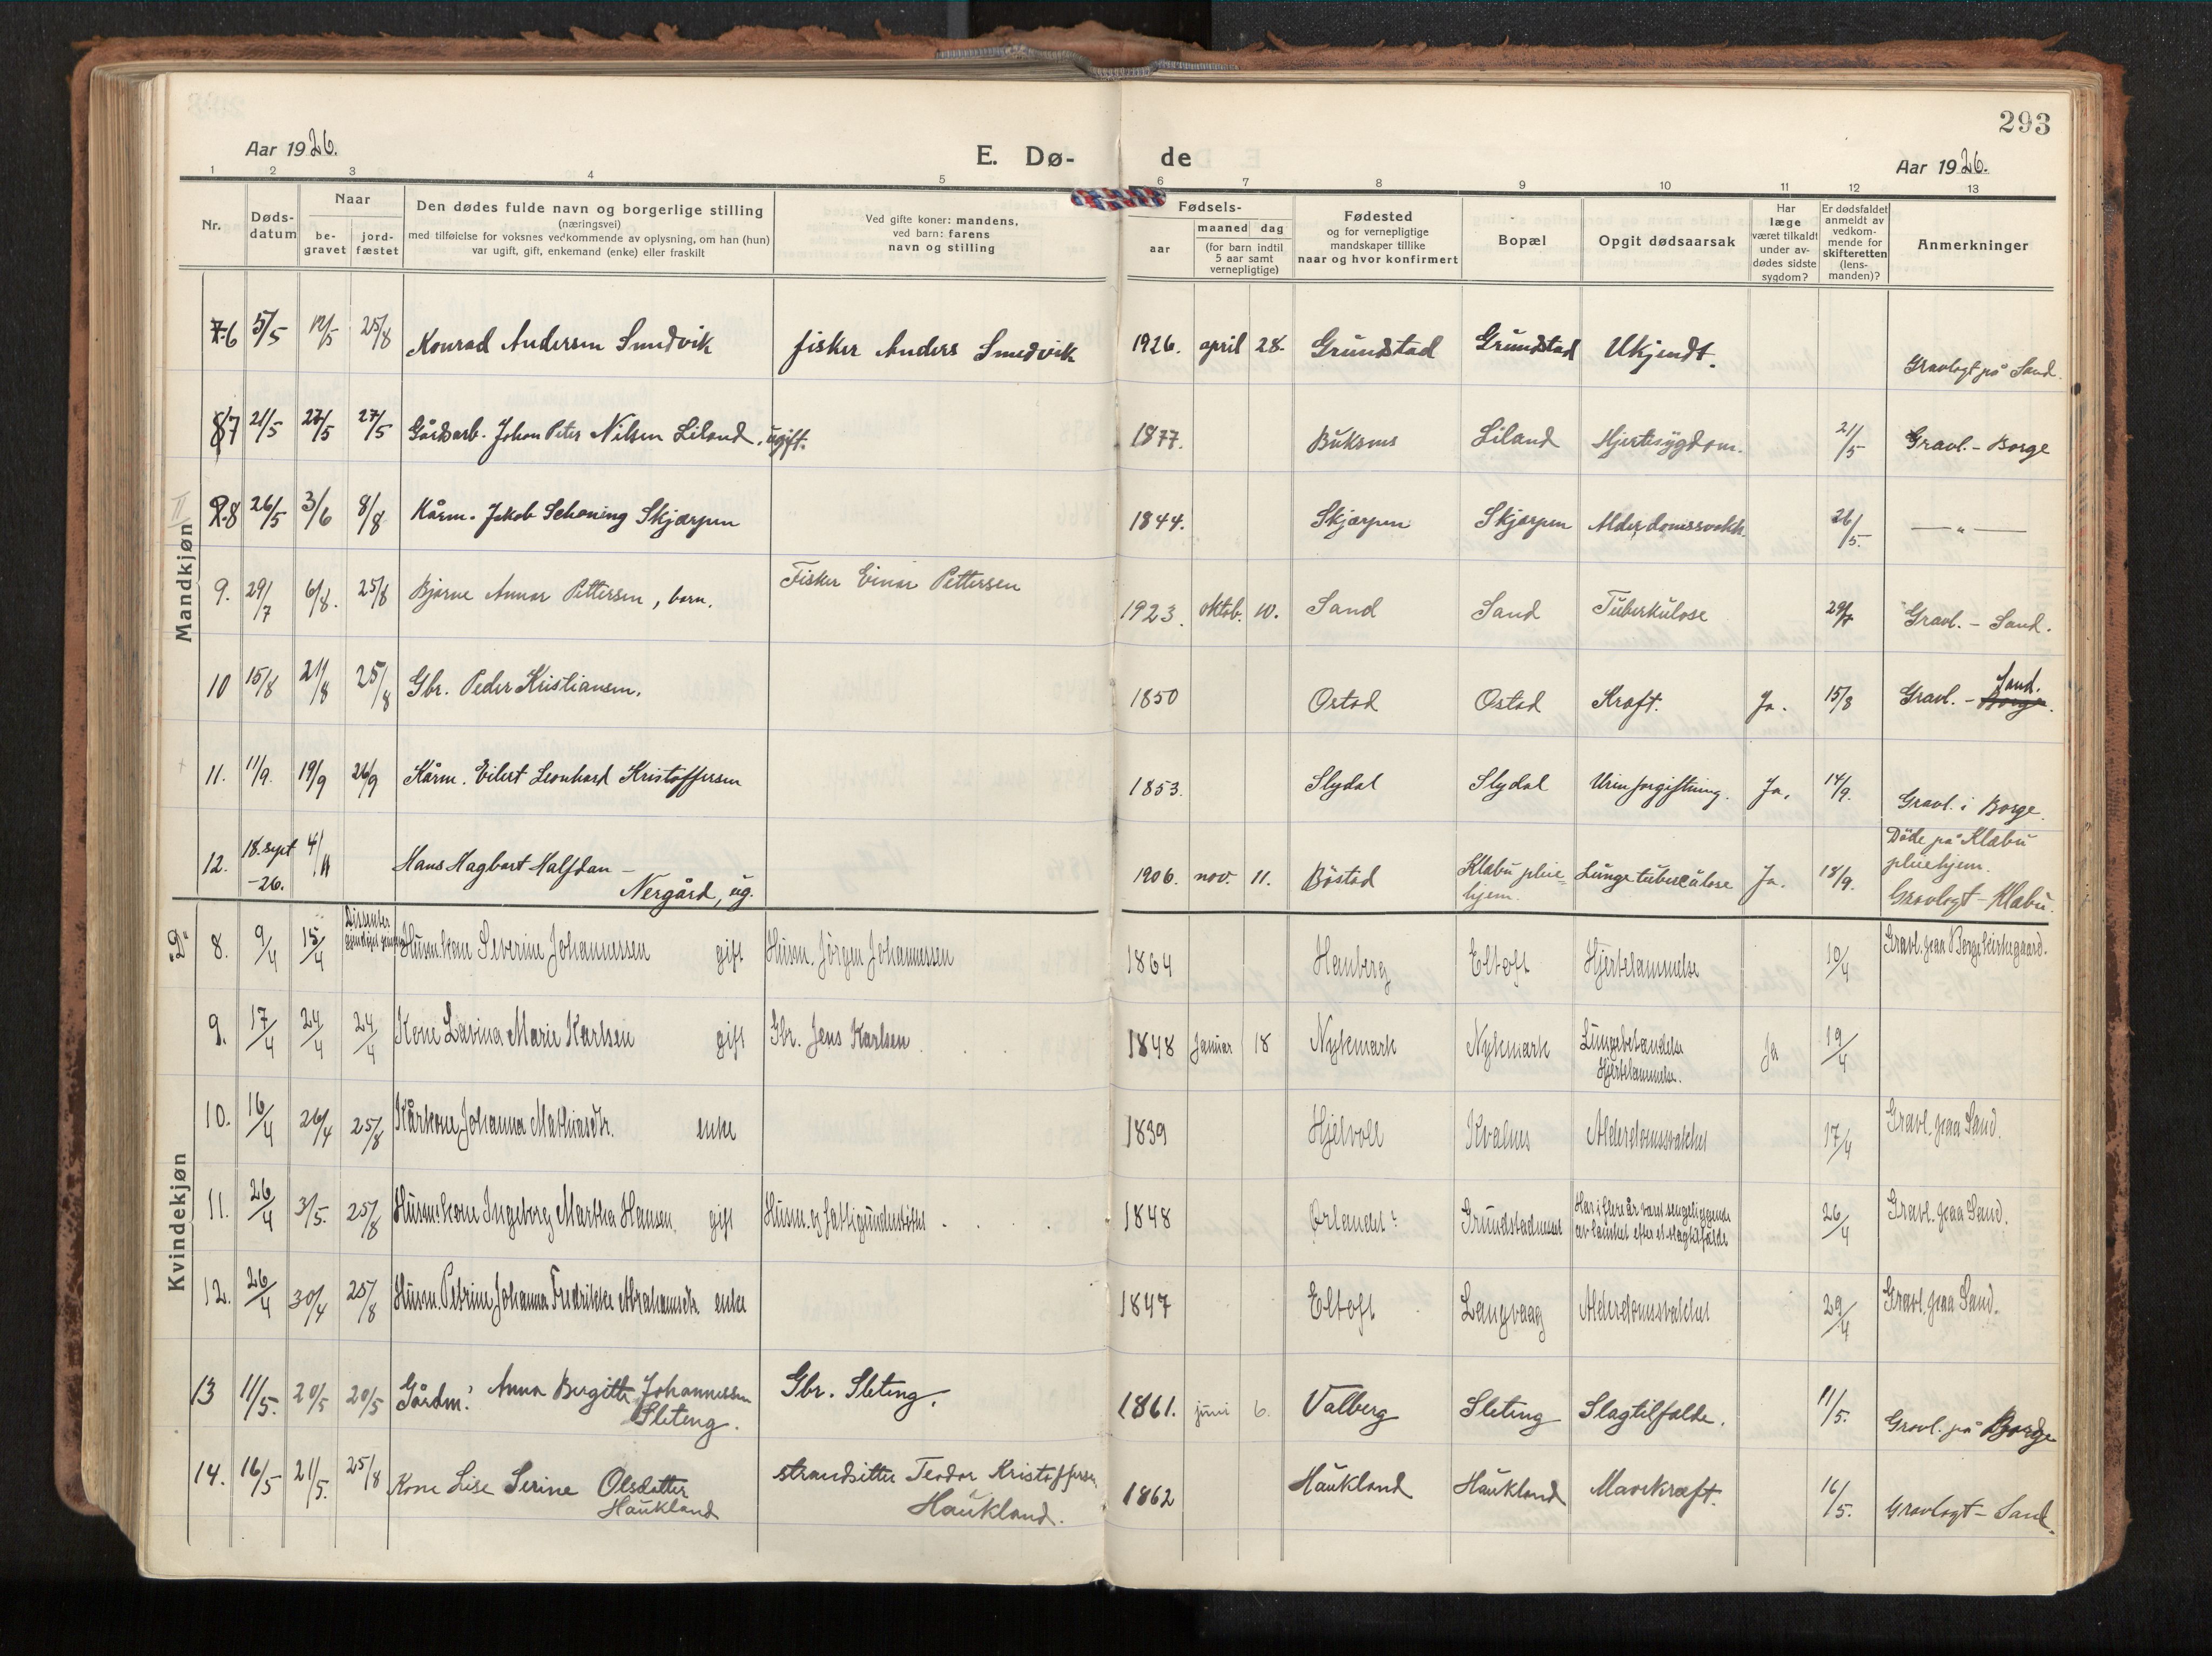 293
Aar 1926.
E. Dø-
de
Aar 1926.
1 2 3 4 5 6 7 8 9 10 11 12 13
Nr.
Døds-
datum
Naar
be-
gravet
jord-
fæstet
Den dødes fulde navn og borgerlige stilling
(næringsvei)
med tilføielse for voksnes vedkommende av oplysning, om han (hun)
var ugift, gift, enkemand (enke) eller fraskilt
Ved gifte koner: mandens,
ved barn: farens
navn og stilling
Fødsels-
aar
maaned dag
(for barn indtil
5 aar samt
vernepligtige)
Fødested
og for vernepligtige
mandskaper tillike
naar og hvor konfirmert
Bopæl
Opgit dødsaarsak
Har
læge
været tilkaldt
under av-
dødes sidste
sygdom?
Er dødsfaldet
anmeldt av
vedkom-
mende for
skifteretten
(lens-
manden)?
Anmerkninger
Mandkjøn
6 5/5 12/5 25/8 Konrad Andersen Smedvik fisker Anders Smedvik 1926. april 28. Grundstad Grundstad Ukjendt. Gravlagt på Sand.
7 21/5 27/5 27/5 Gårdsarb. Johan Peter Nilsen Liland, ugift. 1877. Buksnes Liland Hjertesygdom. 21/5 Gravl. - Borge
8 26/5 3/6 8/8 Kårm. Jakob Schøning Skjærpen 1844. Skjærpen Skjærpen Alderdomssvakh. 26/5. — " —
9. 29/7 6/8. 25/8 Bjarne Annar Pettersen, barn. Fisker Einar Pettersen 1923. oktob. 10. Sand Sand Tuberkulose 29/7 Gravl. - Sand.
10 15/8 21/8 25/8 Gbr. Peder Kristiansen. 1850 Ostad Ostad Kræft. Ja. 15/8 Gravl. - Borge. Sand.
11. 11/9. 19/9 26/9 Kårm. Eilert Leonhard Kristoffersen 1853. Slydal Slydal Urinforgiftning. Ja. 14/9. Gravl. i Borge.
12. 18. sept -26. 4/11 Hans Hagbart Halfdan -
Nergård, ug. 1906. nov. 11. Bøstad Klæbu pleie-
hjem. Lungetuberculose Ja. 18/9. Døde på Klæbu
pleiehjem.
Gravlagt - Klæbu.
Kvindekjøn
"D" 8. 9/4 15/4 Dissenter Husm.kone Severine Johannessen gift Husm. Jørgen Johannessen 1864 Hauberg Eltoft Hjertelammelse 10/4 Gravl. paa Borge kirkegaard.
9. 17/4 24/4 24/4 Kone Lavina Marie Karlsen gift Gbr. Jens Karlsen 1848 Januar 18 Nykmark Nykmark Lungebetændelse
Hjertelammelse. Ja 19/4
10. 16/4 26/4 25/8 Kårkone Johanna Mathiasdtr. enke 1839 Hjelvoll Kvalnes Alderdomssvakhet 17/4 Gravl. paa Sand.
11. 26/4 3/5. 25/8 Husm.kone Ingeborg Martha Hansen gift Husm. og fattigunderstøttet 1848 Ørlandet? Grundstadneset Har i flere år været sengeliggende
av lamhet efter et slagtilfælde 26/4 Gravl. paa Sand.
12. 26/4 30/4 25/8 Husm. Petrine Johanna Fredrikke Abrahamsdtr. enke 1847 Eltoft Langvaag Alderdomssvakhet 29/4 Gravl. paa Sand.
13 11/5. 20/5 20/5 Gårdm. Anna Bergitte Johannessen
Sleteng. Gbr. Sleteng. 1861. juni 6. Valberg Sleteng Slagtilfælde. 11/5. Gravl. på Borge
14. 16/5 21/5. 25/8 Kone Lise Serine Olsdatter
Haukland strandsitter Teodor Kristoffersen
Haukland. 1862 Haukland Haukland Mavekræft. 16/5. Gravlagt - Sand.